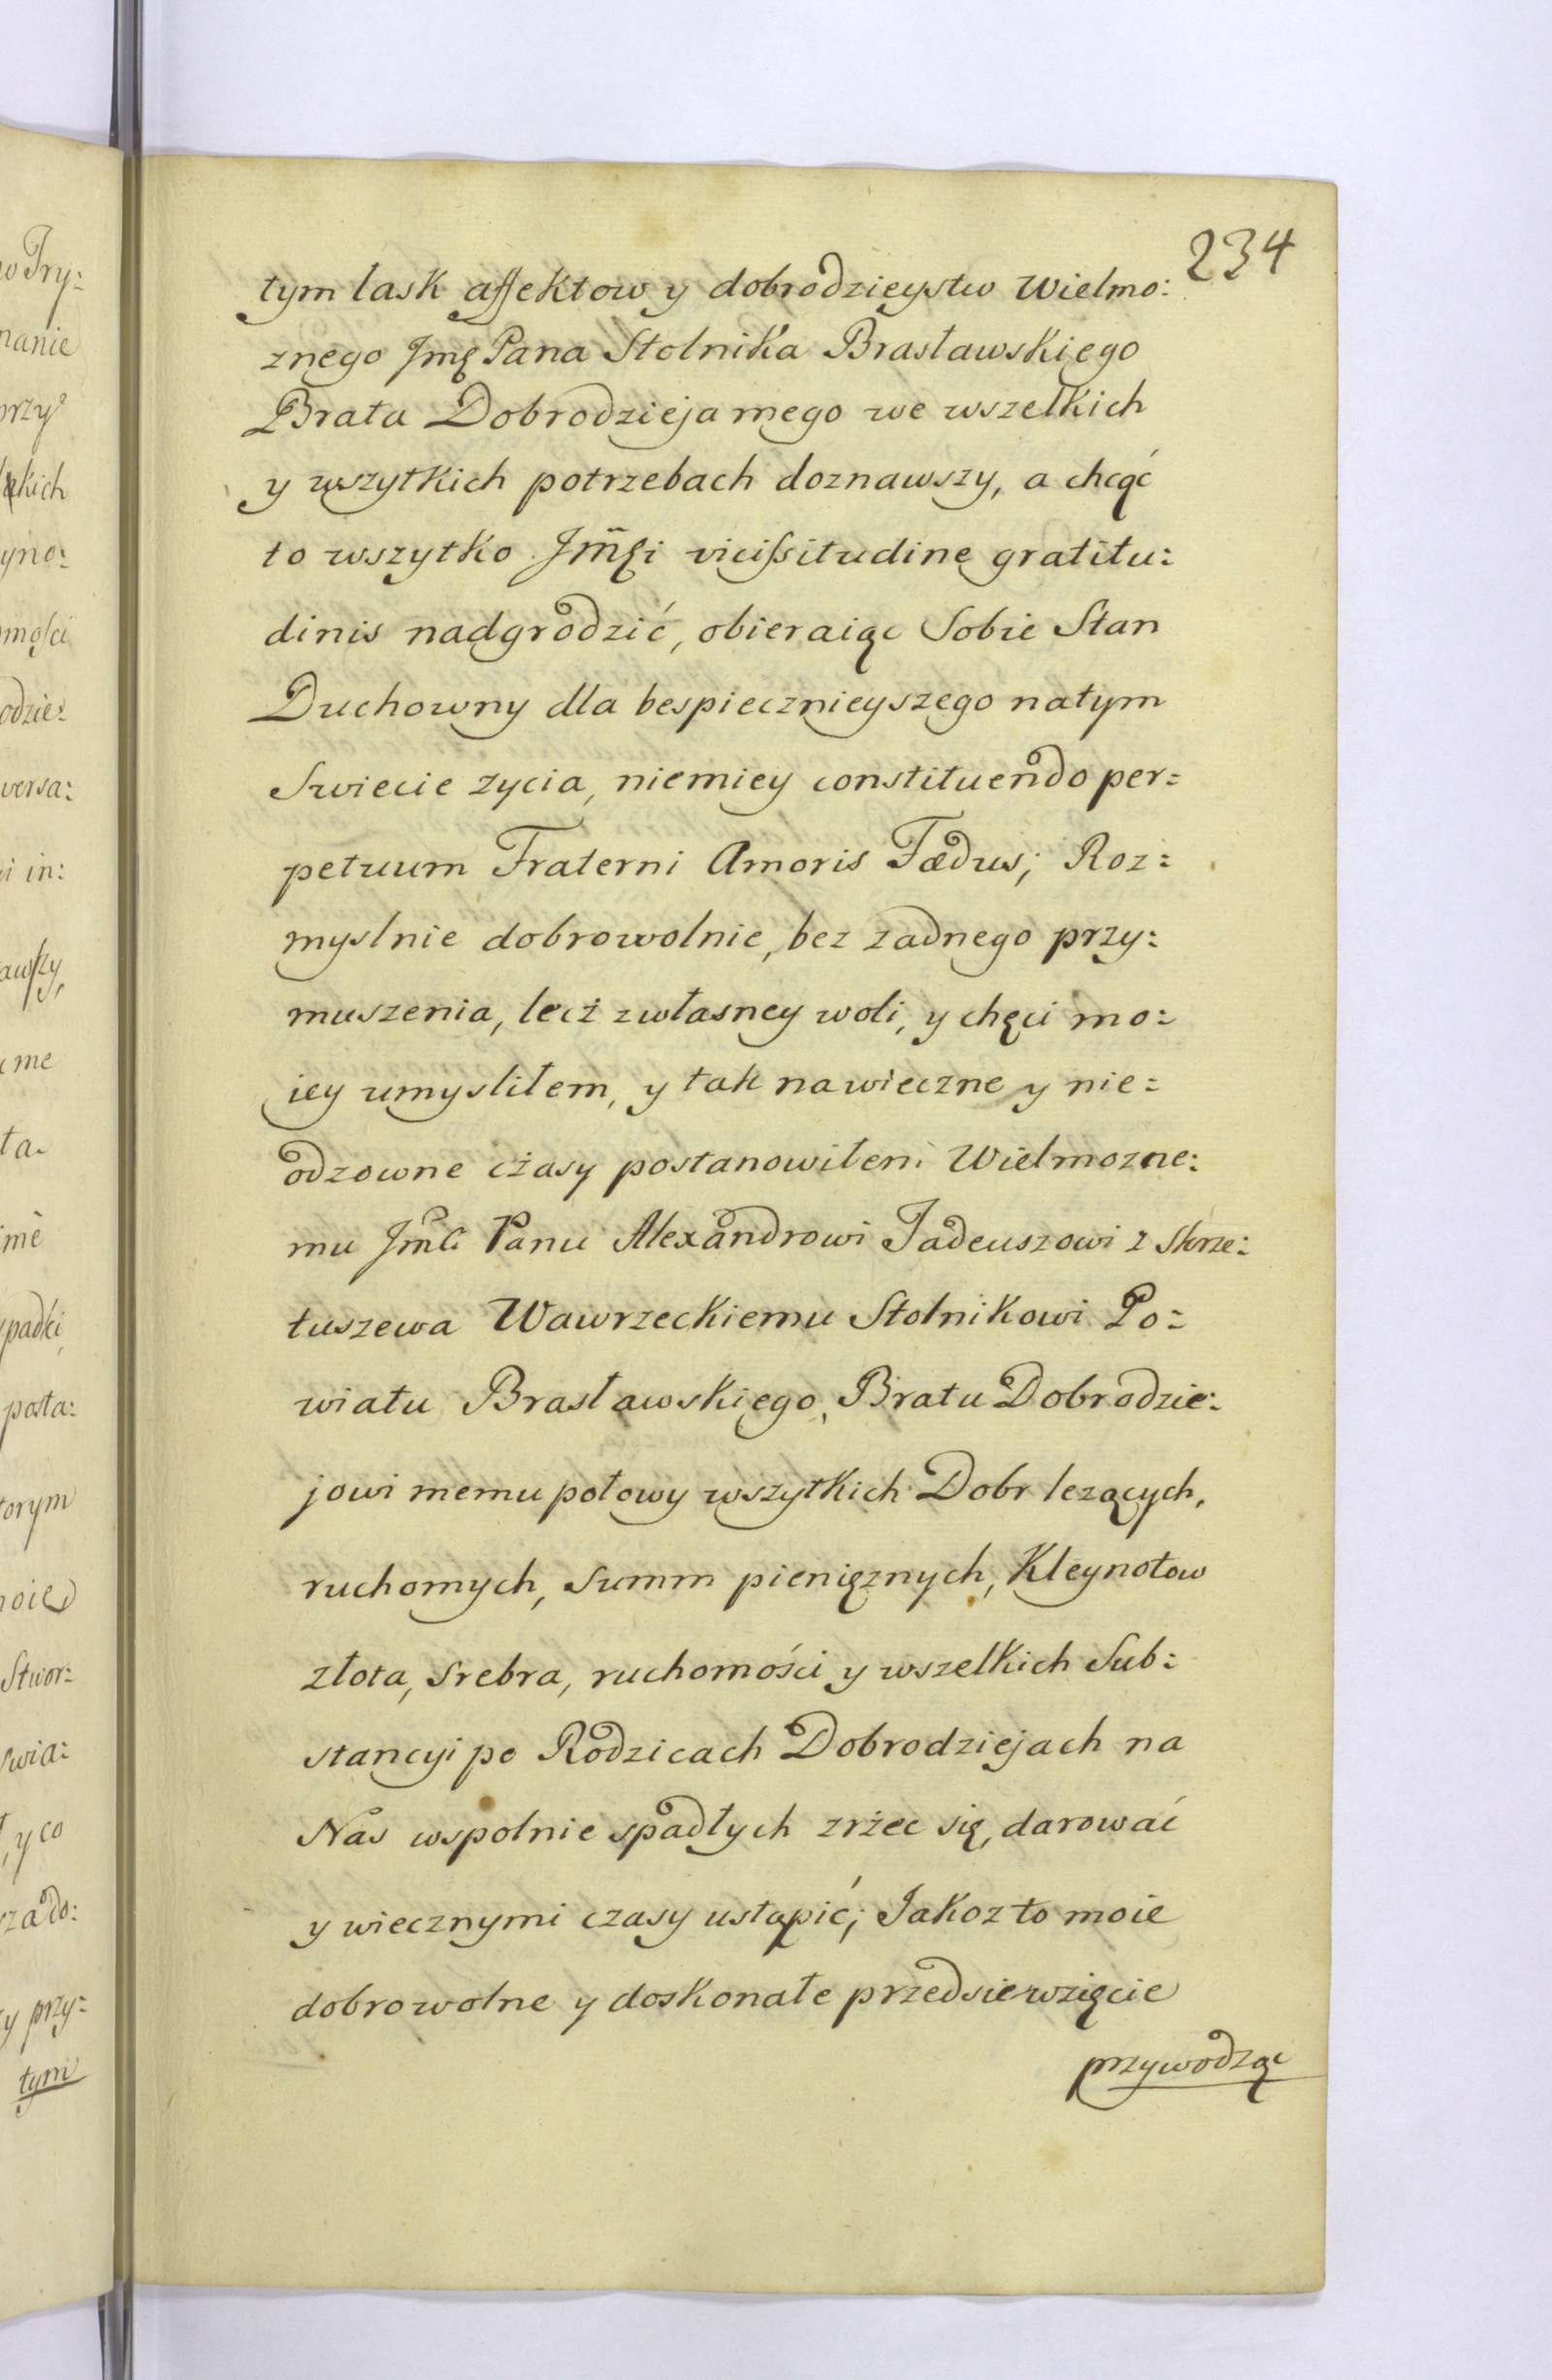 234
tym lask affektow y dobrodzieystw Wielmo:
znego Jmę Pana Stolnika Brasławskiego
Brata Dobrodzieja mego we wszelkich
y wszytkich potrzebach doznawszy, a chcąć
to wszytko Jm̃ęi vicißitudine gratitu:
dinis nadgrodzić, obieraiąc Sobie Stan
Duchowny dla bespiecznieyszego natym
Swiecie zycia, niemiey constituendo per=
petuum Fraterni Amoris Fædus; Roz=
myslnie dobrowolnie, bez zadnego przy:
muszenia, lecż zwłasney woli, y chęci mo:
iey umysliłem, y tak nawieczne y nie=
odzowne cżasy postanowiłem Wielmozne:
mu Jmći Panu Alexandrowi Tadeuszowi z Skrze:
tuszewa Wawrzeckiemu Stolnikowi Po=
wiatu Brasławskiego, Bratu Dobrodzie:
jowi memu połowy wszytkich Dobr lezących,
ruchomych, Summ pienięznych, Kleynotow
złota, Srebra, ruchomości y wszelkich Sub:
stancyi po Rodzicach Dobrodziejach na
Nas wspolnie spadłych zrżec się, darować
y wiecznymi czasy ustąpić; Jakoz to moie
dobrowolne y doskonałe przedsiewzięcie
przywodząc
wTry:
nanie
przy
kich
yno:
mości
odzie:
versa:
i in:
awszy,
me
ta.
me
padki,
posta:
torym
moie
Stwor:
swia:
, y co
zado:
y przy=
tym